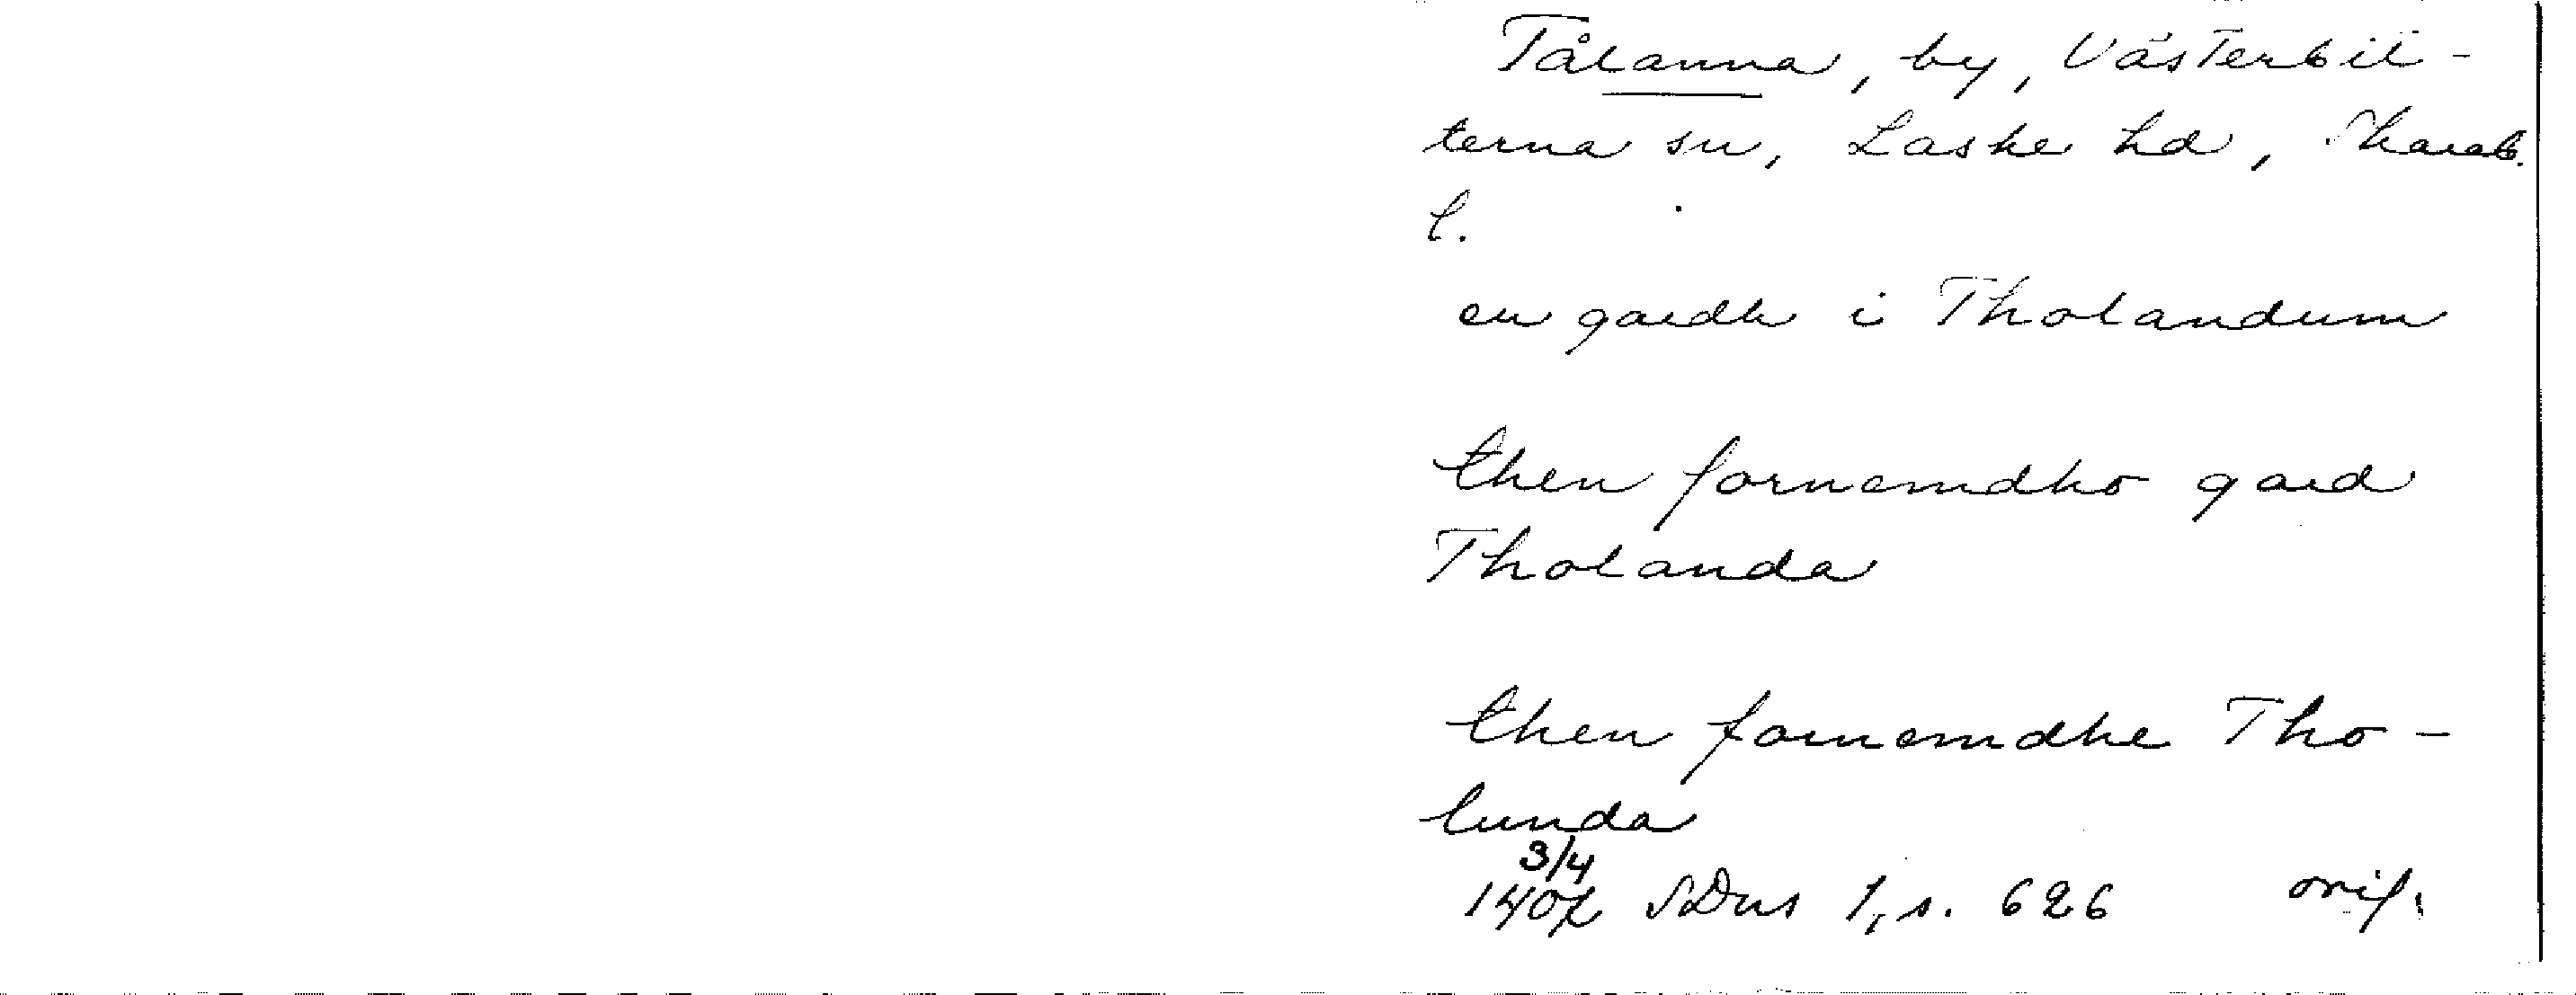 Tålanna, by, Västerbit-
terna sn, Laske hd, Skarab.
l.
en gardh i Tholandum
then fornemdho gard
Tholanda
then fornemdhe Tho-
lunda
3/4
1407 SDns 1, s. 626 orig.